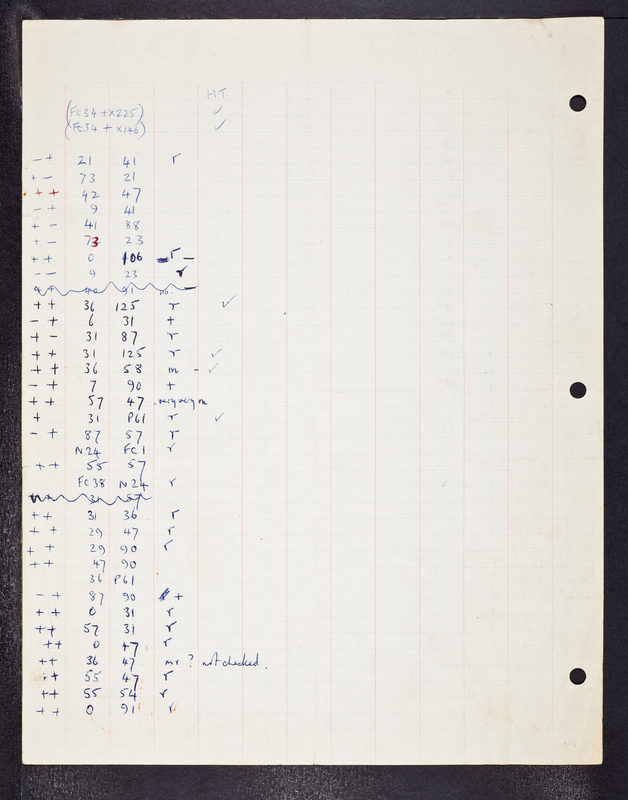 HT
(FC34 + X225) ✓
(FC34 + X146) ✓
- + 21 41 r
+ - 73 21
+ + 42 47
- + 9 41
+ - 41 88
+ - 73 23
+ + 0 106 r
- - 9 23 r
+ + 91
+ + 36 125 r ✓
- + 6 31 +
+ - 31 87 r
+ + 31 125 r ✓
+ + 36 58 m - ✓
- + 7 90 +
+ + 57 47 very very m
+ 31 P61 r ✓
- + 87 57 r
N24 FC1 r
+ + 55 57
FC38 N24 r
31 57
+ + 31 36 r
+ + 29 47 r
+ + 29 90 r
+ + 47 90
36 P61
- + 87 90 +
+ + 0 31 r
+ + 57 31 r
+ + 0 47 r
+ + 36 47 mr ? not checked.
+ + 55 47 r
+ + 55 54 r
+ + 0 91 r